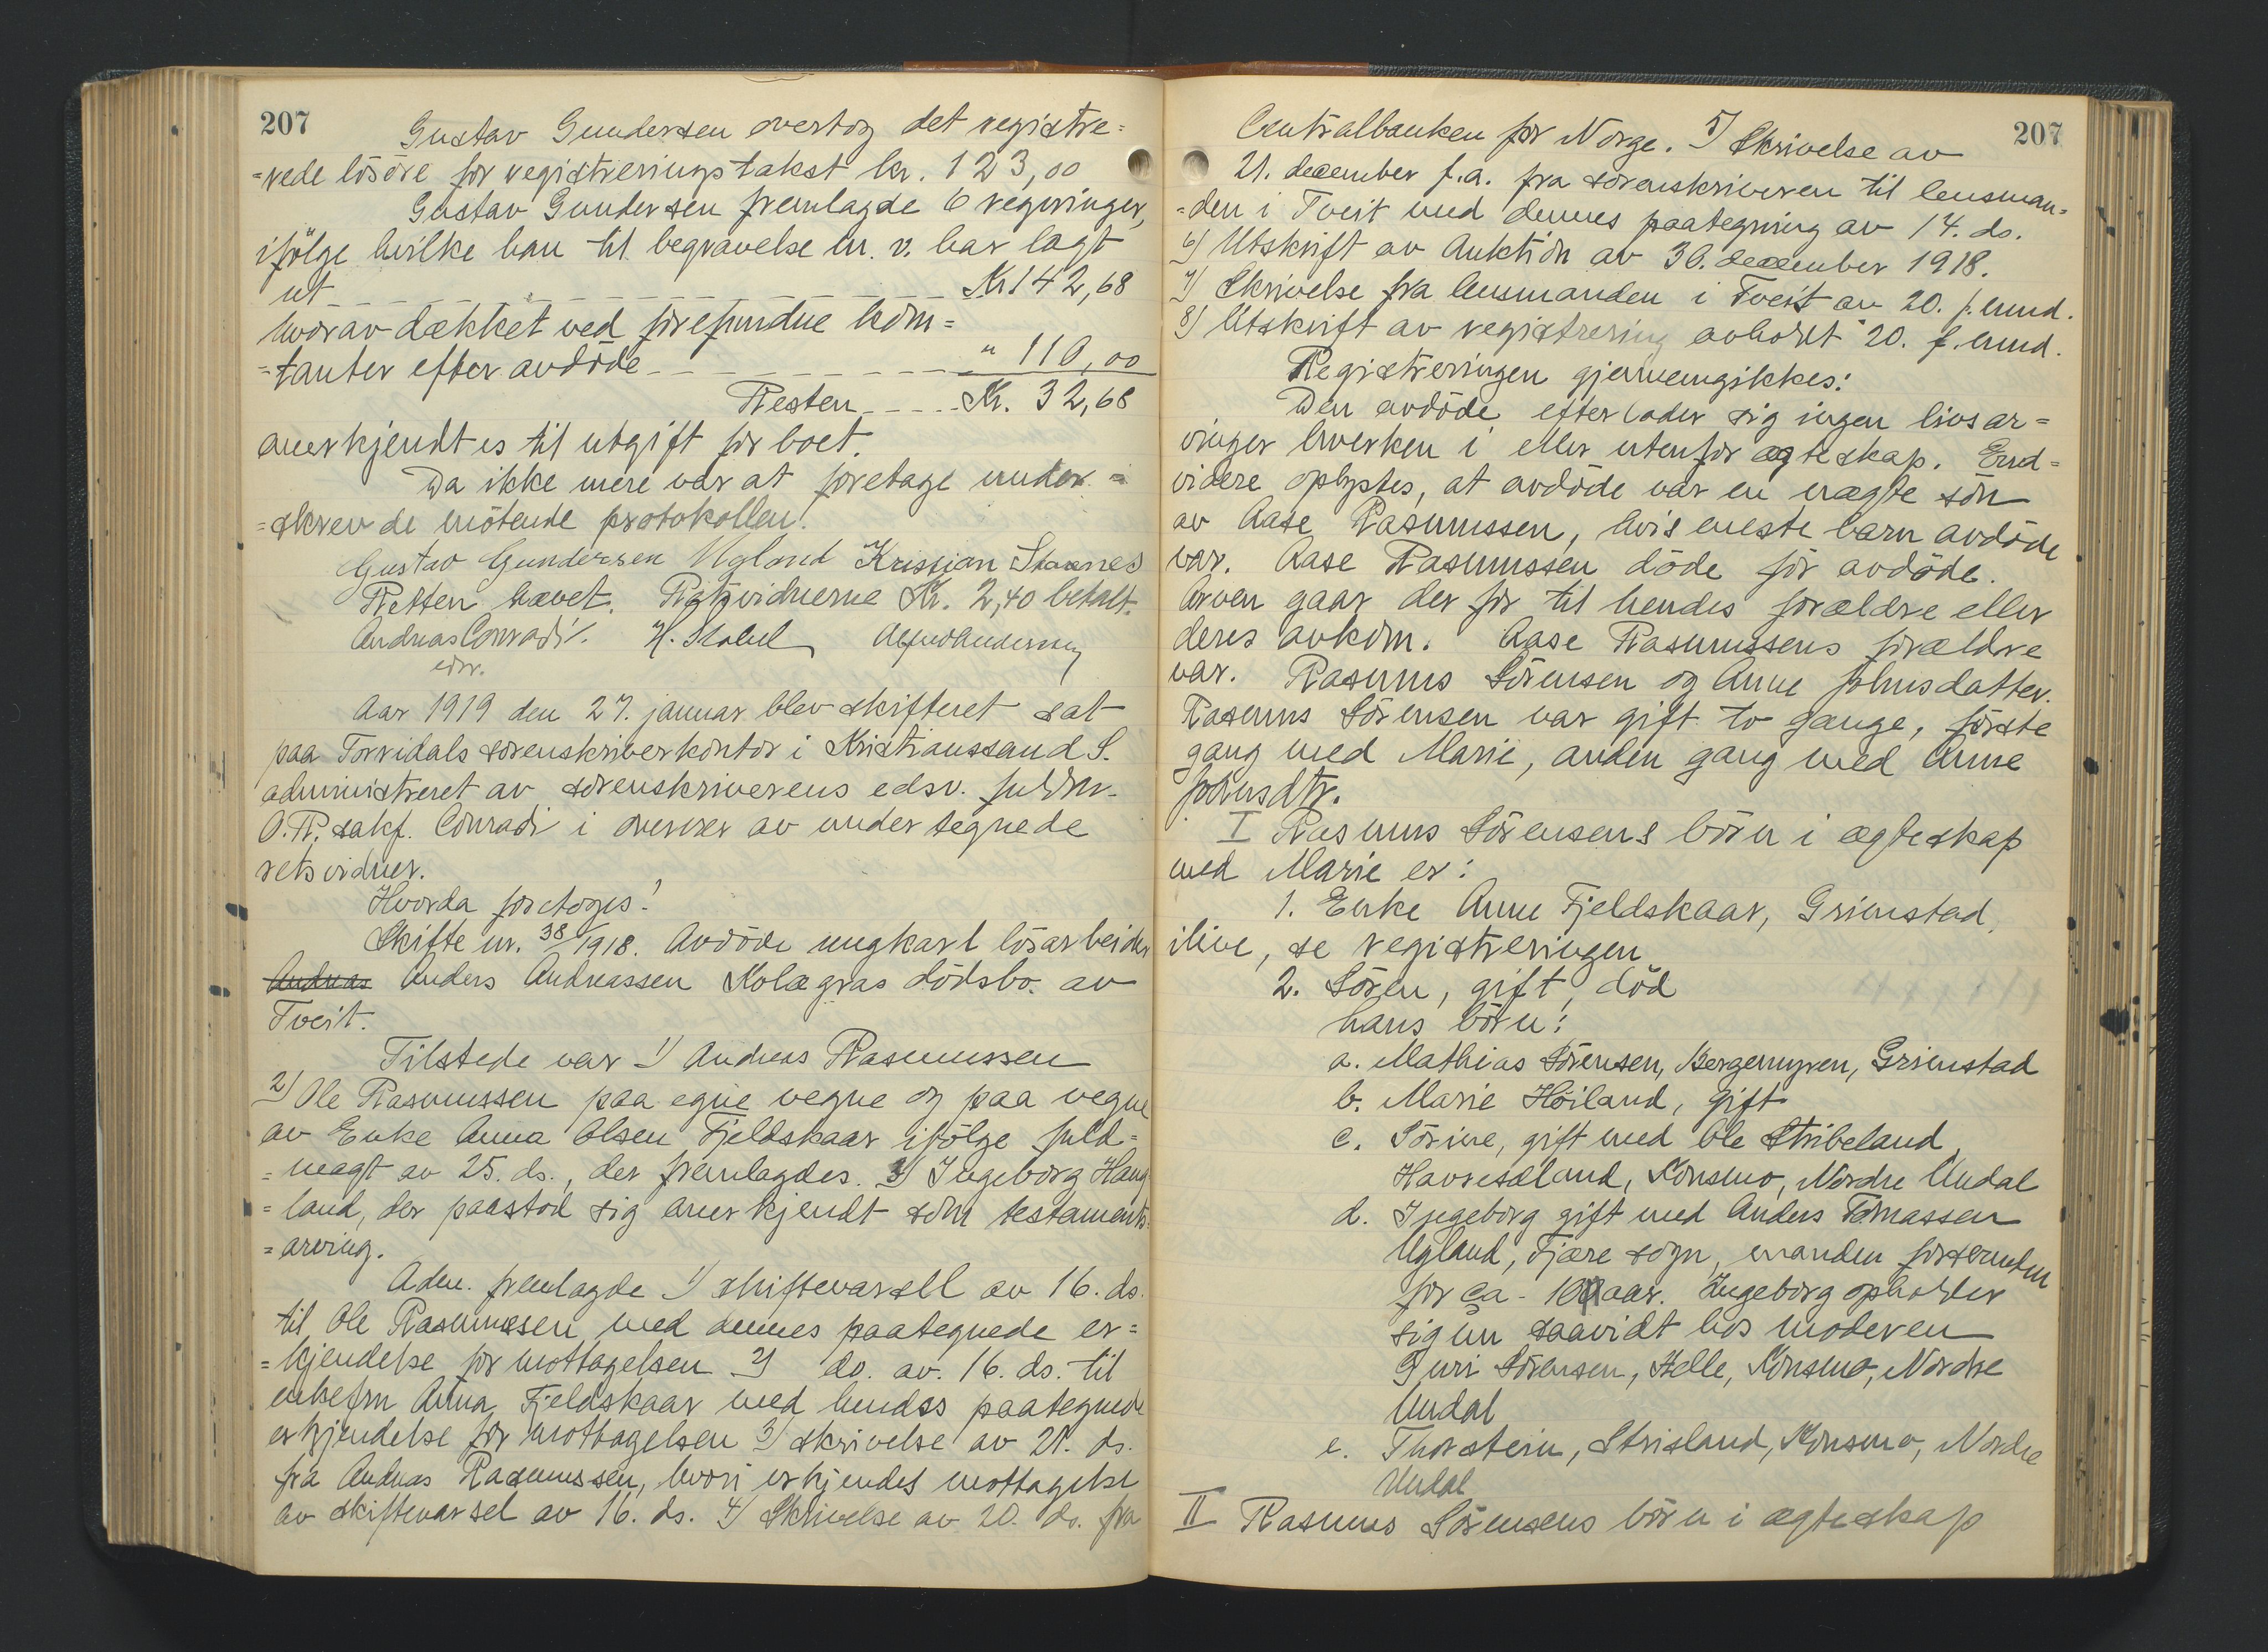 207
Gustav Gundersen overtog det registre=
=rede lösöre for registreringstakst kr. 123,00
Gustav Gundersen fremlagde 6 regninger,
ifölge hvilke han til begravelse m. v. har lagt
ut Kr 142,68
hvorav dækket ved forefundne kon=
=tanter efter avdöde " 110,00
Resten Kr. 32,68
anerkjendtes til utgift for boet.
Da ikke mere var at foretage under=
=skrev de mötende protokollen.
Gustav Gundersen Ugland Kristian Stavnes
Retten hævet. Retsvidnerne Kr. 2,40 betalt.
Andreas Conradi. H. Stabel Alfred Andersen
edsv.
Aar 1919 den 27. januar blev skifteret sat
paa Torridals sorenskriverkontor i Kristianssand S.
administreret av sorenskriverens edsv. fuldm.
O.R. sakf. Conradi i overvær av undertegnede
retsvidner.
Hvorda foretoges:
Skifte nr. 38/1918. Avdöde ungkarl lösarbeider
Andreas Anders Andreassen Kolægras dödsbo. av
Tveit.
Tilstede var 1) Andreas Rasmussen
2) Ole Rasmussen paa egne vegne og paa vegne
av Enke Anna Olsen Fjeldskaar ifölge fuld=
=magt av 25. ds., der fremlagdes. 3) Ingeborg Haug
=land, der paastod sig anerkjendt som testaments=
=arving.
Adm. fremlagde 1) skiftevarsel av 16. ds.
til Ole Rasmussen med dennes paategnede er=
=kjendelse for mottagelsen 2) do. av. 16. ds. til
enkefru Anna Fjeldskaar med hendes paategnede
erkjendelse for mottagelsen 3) skrivelse av 21. ds.
fra Andreas Rasmussen, hvori erkjendes mottagelse
av skiftevarsel av 16. ds. 4) Skrivelse av 20. ds. fra
207
Centralbanken for Norge. 5) Skrivelse av
21. december f.a. fra sorenskriveren til lensman=
=den i Tveit med dennes paategning av 14. ds.
6) Utskrift av Auktion av 30. december 1918.
7) Skrivelse fra lensmanden i Tveit av 20. f. mnd.
8) Utskrift av registrering avholdt 20. f. mnd.
Registreringen gjennemgikkes:
Den avdöde efterlader sig ingen livsar=
vinger hverken i eller utenfor ægteskap. End=
videre oplystes, at avdöde var en uægte sön
av Aase Rasmussen, hvis eneste barn avdöde
var. Aase Rasmussen döde för avdöde.
Arven gaar derfor til hendes forældre eller
deres avkom. Aase Rasmussens forældre
var. Rasmus Sörensen og Anne Johnsdatter.
Rasmus Sörensen var gift to gange, förste
gang med Marie, anden gang med Anne
Johnsdtr.
I Rasmus Sörensens börn i ægteskap
med Marie er:
1. Enke Anne Fjeldskaar, Grimstad,
ilive, se registreringen
2. Sören, gift, död
hans börn:
a. Mathias Sörensen, Bergemyren, Grimstad
b. Marie Höiland, gift
c. Sörine, gift med Ole Stribeland
Havresdland, Konsmo, Nordre Undal
d. Ingeborg gift med Anders Tomassen
Ugland, Fjære sogn, manden forsvunden
for ca. 10 aar. Ingeborg opholder
sig nu saavidt hos moderen
Guri Sörensen, Helle, Konsmo, Nordre
Undal
e. Thorstein, Strisland, Konsmo, Nordre
Undal
II Rasmus Sörensens börn i ægteskap